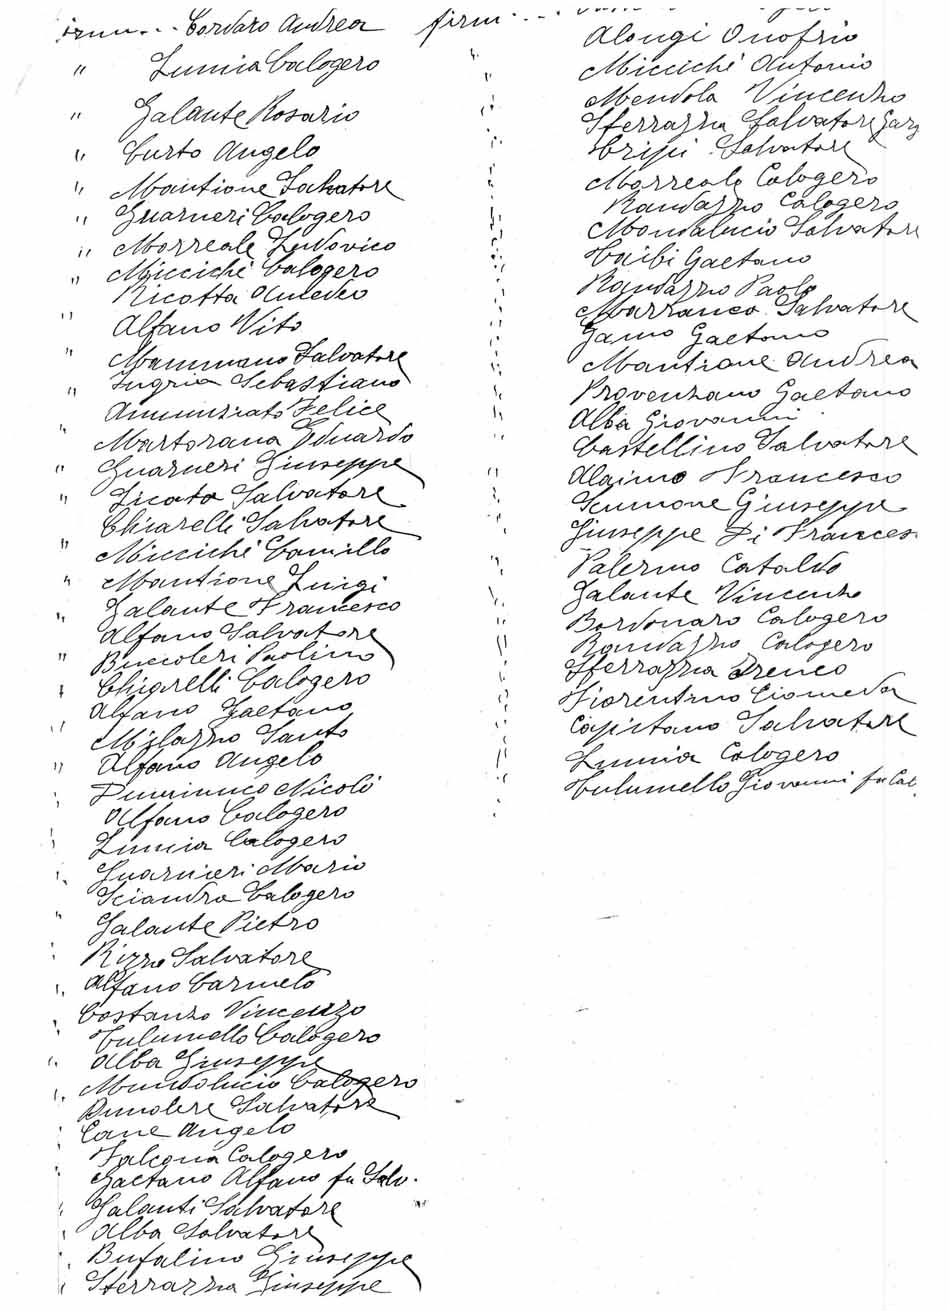 firm... Cordaro Andrea
" Lumia Calogero
" Galante Rosario
" Curto Angelo
" Mantione Salvatore
" Guarneri Calogero
" Morreale Ludovico
Micciché Calogero
Ricotta Amedeo
" Alfano Vito
" Mammano Salvatore
Ingria Sebastiano
" Annunziato Felice
" Martorana Eduardo
" Guarneri Giuseppe
" Licata Salvatore
Chiarelli Salvatore
" Micciché Camillo
" Mantione Luigi
" Galante Francesco
Alfano Salvatore
" Buccoleri Paolino
" Chiarelli Calogero
" Alfano Gaetano
Milazzo Santo
" Alfano Angelo
Nicolò
Alfano Calogero
Lumia Calogero
Guarnieri Mario
Sciandra Calogero
" Galante Pietro
Rizzo Salvatore
Alfano Carmelo
Costanzo Vincenzo
Tulumello Calogero
Alba Giuseppe
Mundolucio Calogero
Salvatore
Cane Angelo
Falcona Calogero
Gaetano Alfano fu Salv.
Galanti Salvatore
Alba Salvatore
Bufalino Giuseppe
Sferrazza Giuseppe
firm....
Alongi Onofrio
Micciché Antonio
Mendola Vincenzo
Sferrazza Salvatore
Crispi Salvatore
Morreale Calogero
Randazzo Calogero
Mondalucio Salvatore
Taibi Gaetano
Randazzo Paolo
Marranca Salvatore
Gaetano
Mantione Andrea
Provenzano Gaetano
Alba Giovanni
Castellino Salvatore
Alaimo Francesco
Scimone Giuseppe
Giuseppe Di Frances
Palermo Cataldo
Galante Vincenzo
Bordonaro Calogero
Randazzo Calogero
Sferrazza Ireneo
Fiorentino
Capitano Salvatore
Lumia Calogero
Tulumello Giovanni fu Cal.